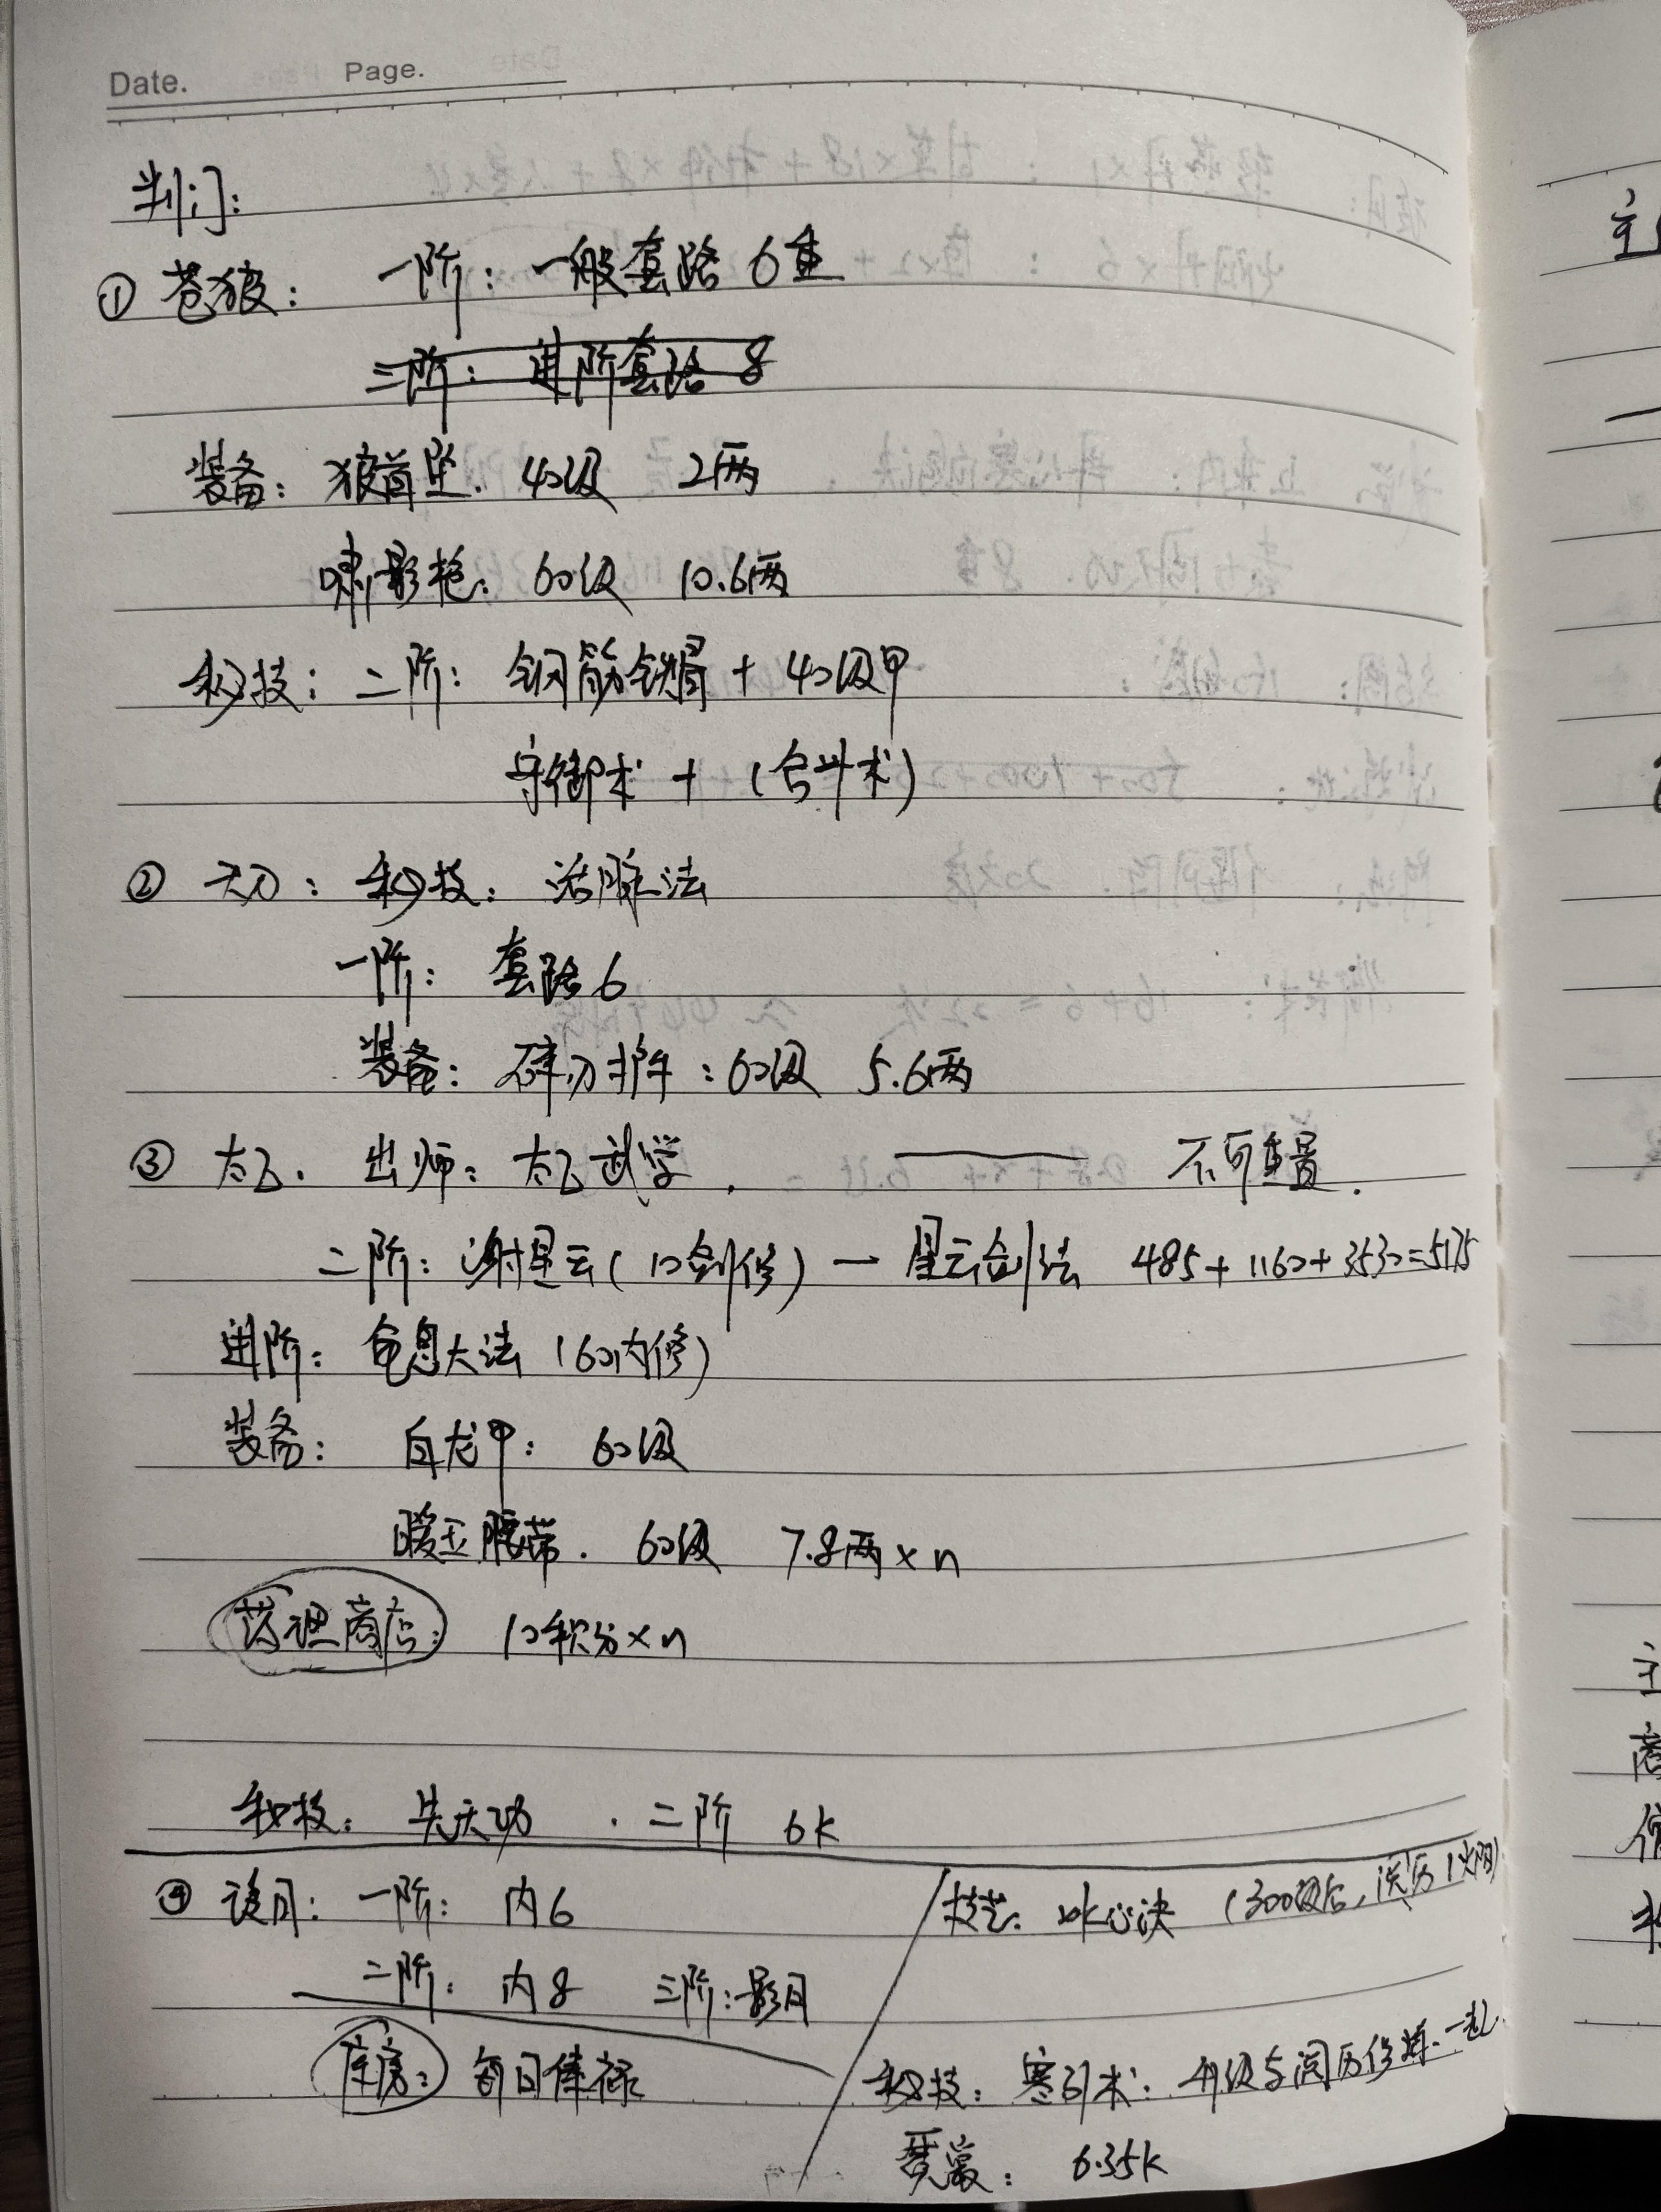 Date. Page.
判门：
① 苍狼： 一阶：一般套路 6重
三阶：进阶套路 8
装备：狼首坠. 40级 2两
啸影枪. 60级 10.6两
秘技：二阶：钢筋铁骨 + 40级甲
守御术 + (合斗术)
② 天刀：秘技：活脉法
一阶：套路6
装备：碎刃护手：60级 5.6两
③ 太乙. 出师：太乙武学. 不可重置.
二阶：谢星云(10剑修) — 星云剑法 485+1160+3530=5175
进阶：龟息大法 (60内修)
装备： 白龙甲： 60级
暖玉腰带. 60级 7.8两×n
药理商店： 10积分×n
秘技：先天功 . 二阶 6k
④ 诶月：一阶： 内6
技艺：冰心决 (300级后,
二阶：内8 三阶：影月
库房： 每日俸禄
秘技：寒引术：升级与阅历修炼一起.
6.35k